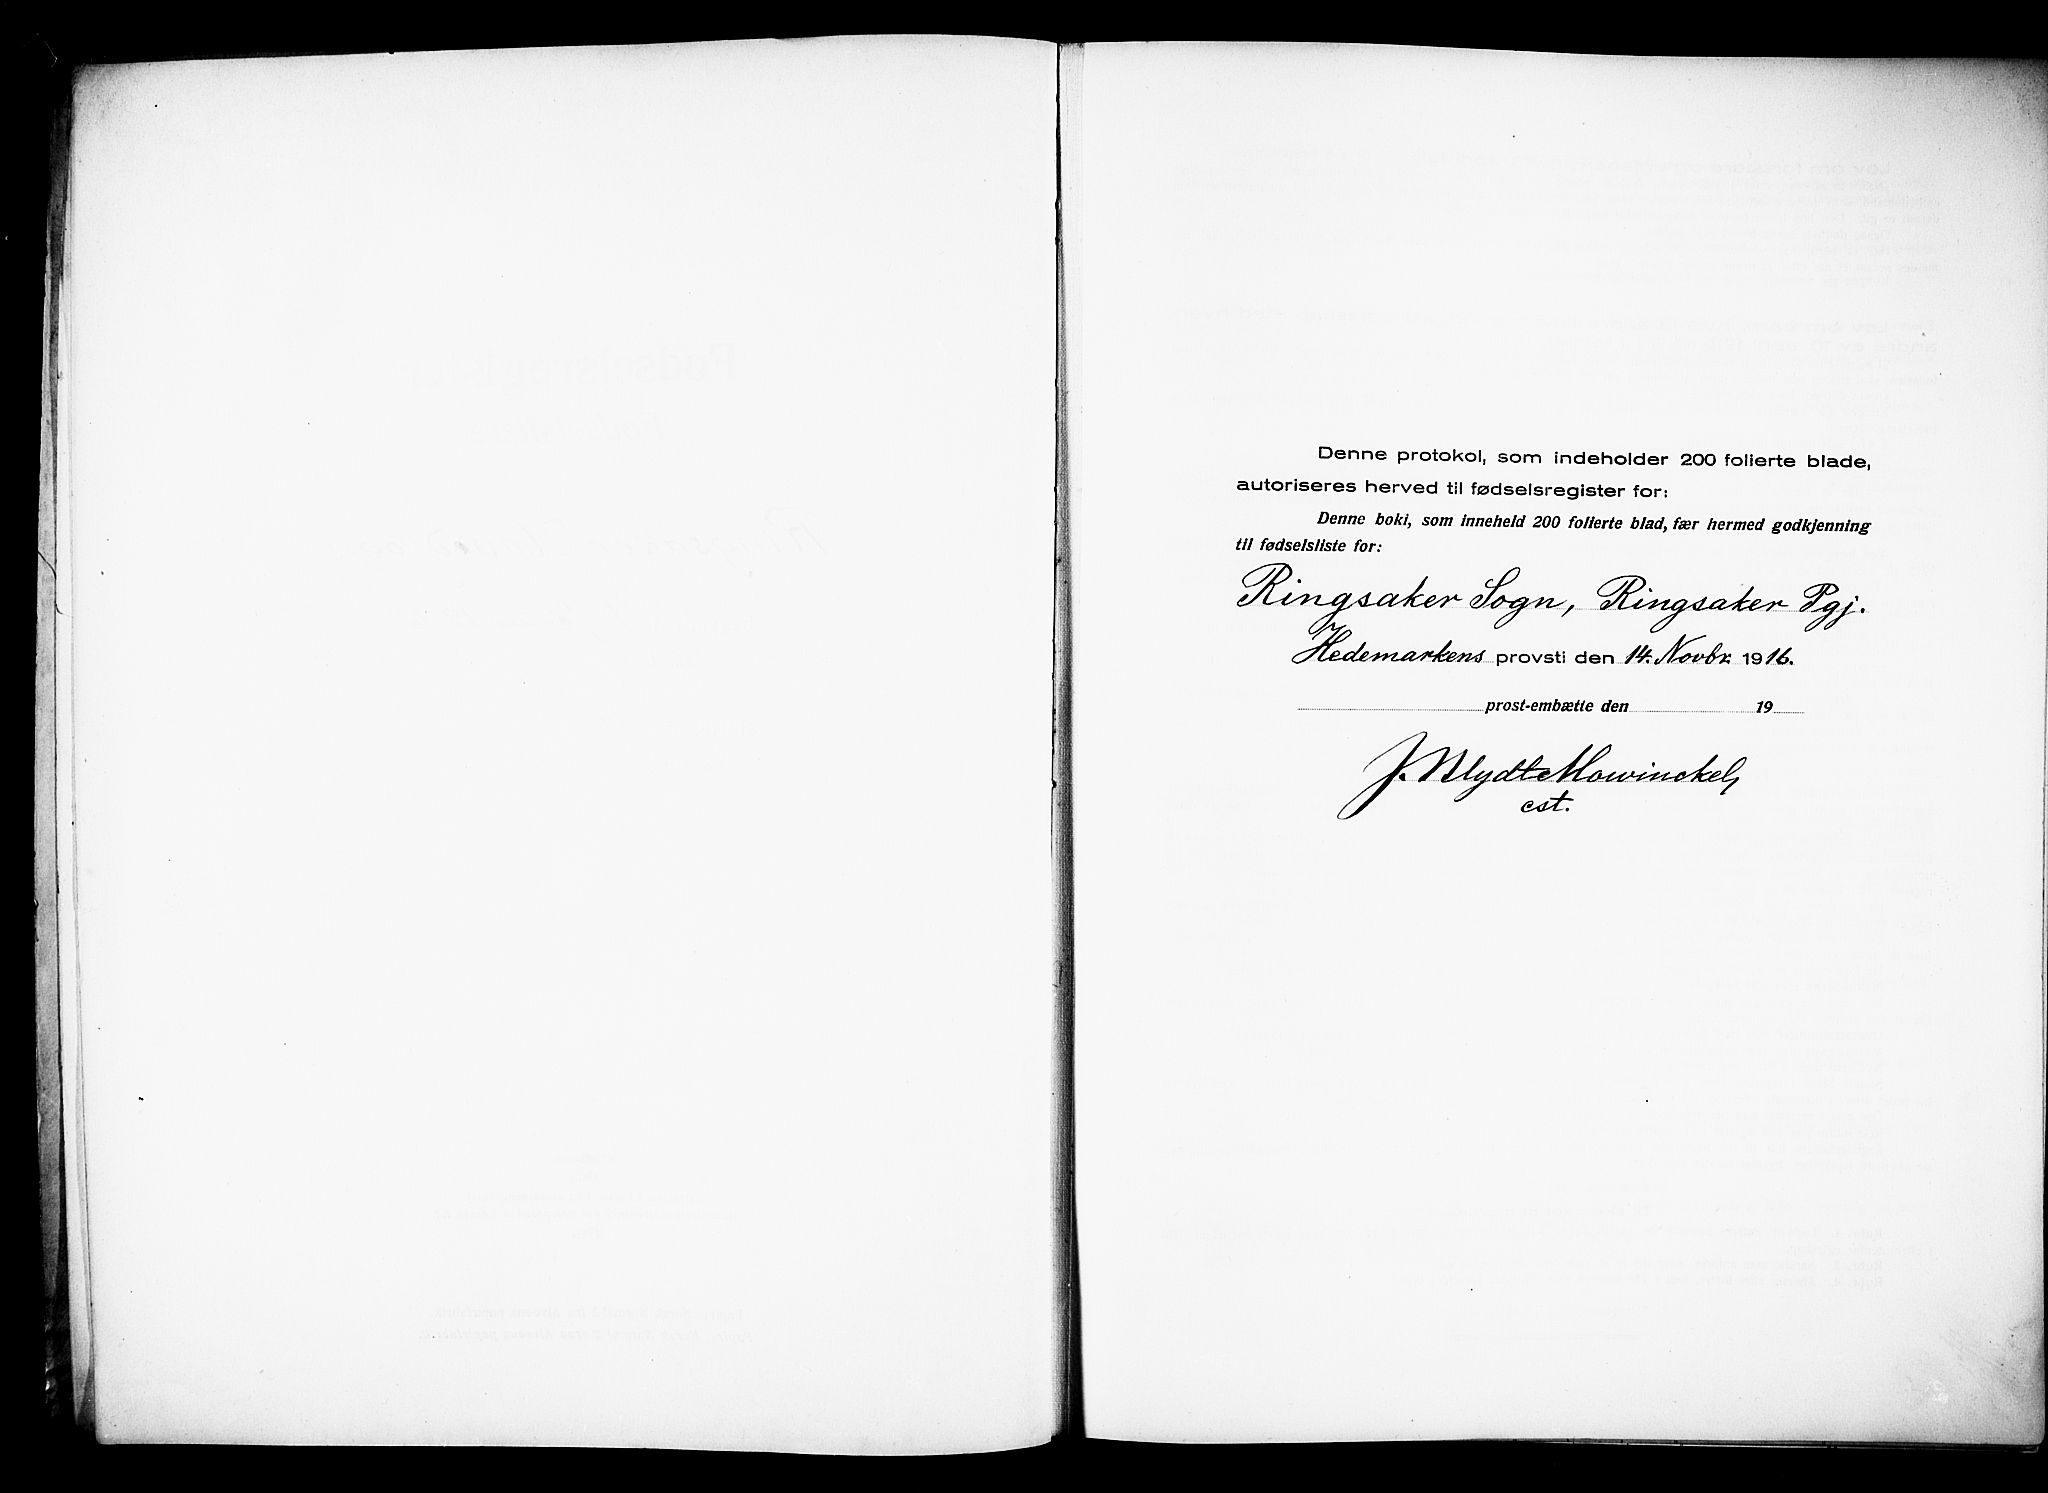 Denne protokol, som indeholder 200 folierte blade,
autoriseres herved til fødselsregister for:
Denne boki, som inneheld 200 folierte blad, fær hermed godkjenning
til fødselsliste for:
Ringsaker Sogn, Ringsaker Pgj.
Hedemarkens provsti den 14. Novbr. 1916.
prost-embætte den 19
J. Blydt Mowinckel,
cst.